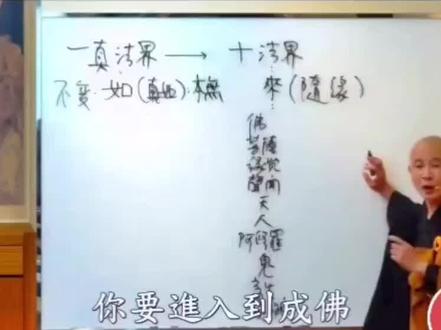 一真法界 → 十法界
不變·如(真如)· 來(隨緣)
佛
菩薩
緣覺
聲聞
天
人
阿修羅
鬼
你要進入到成佛